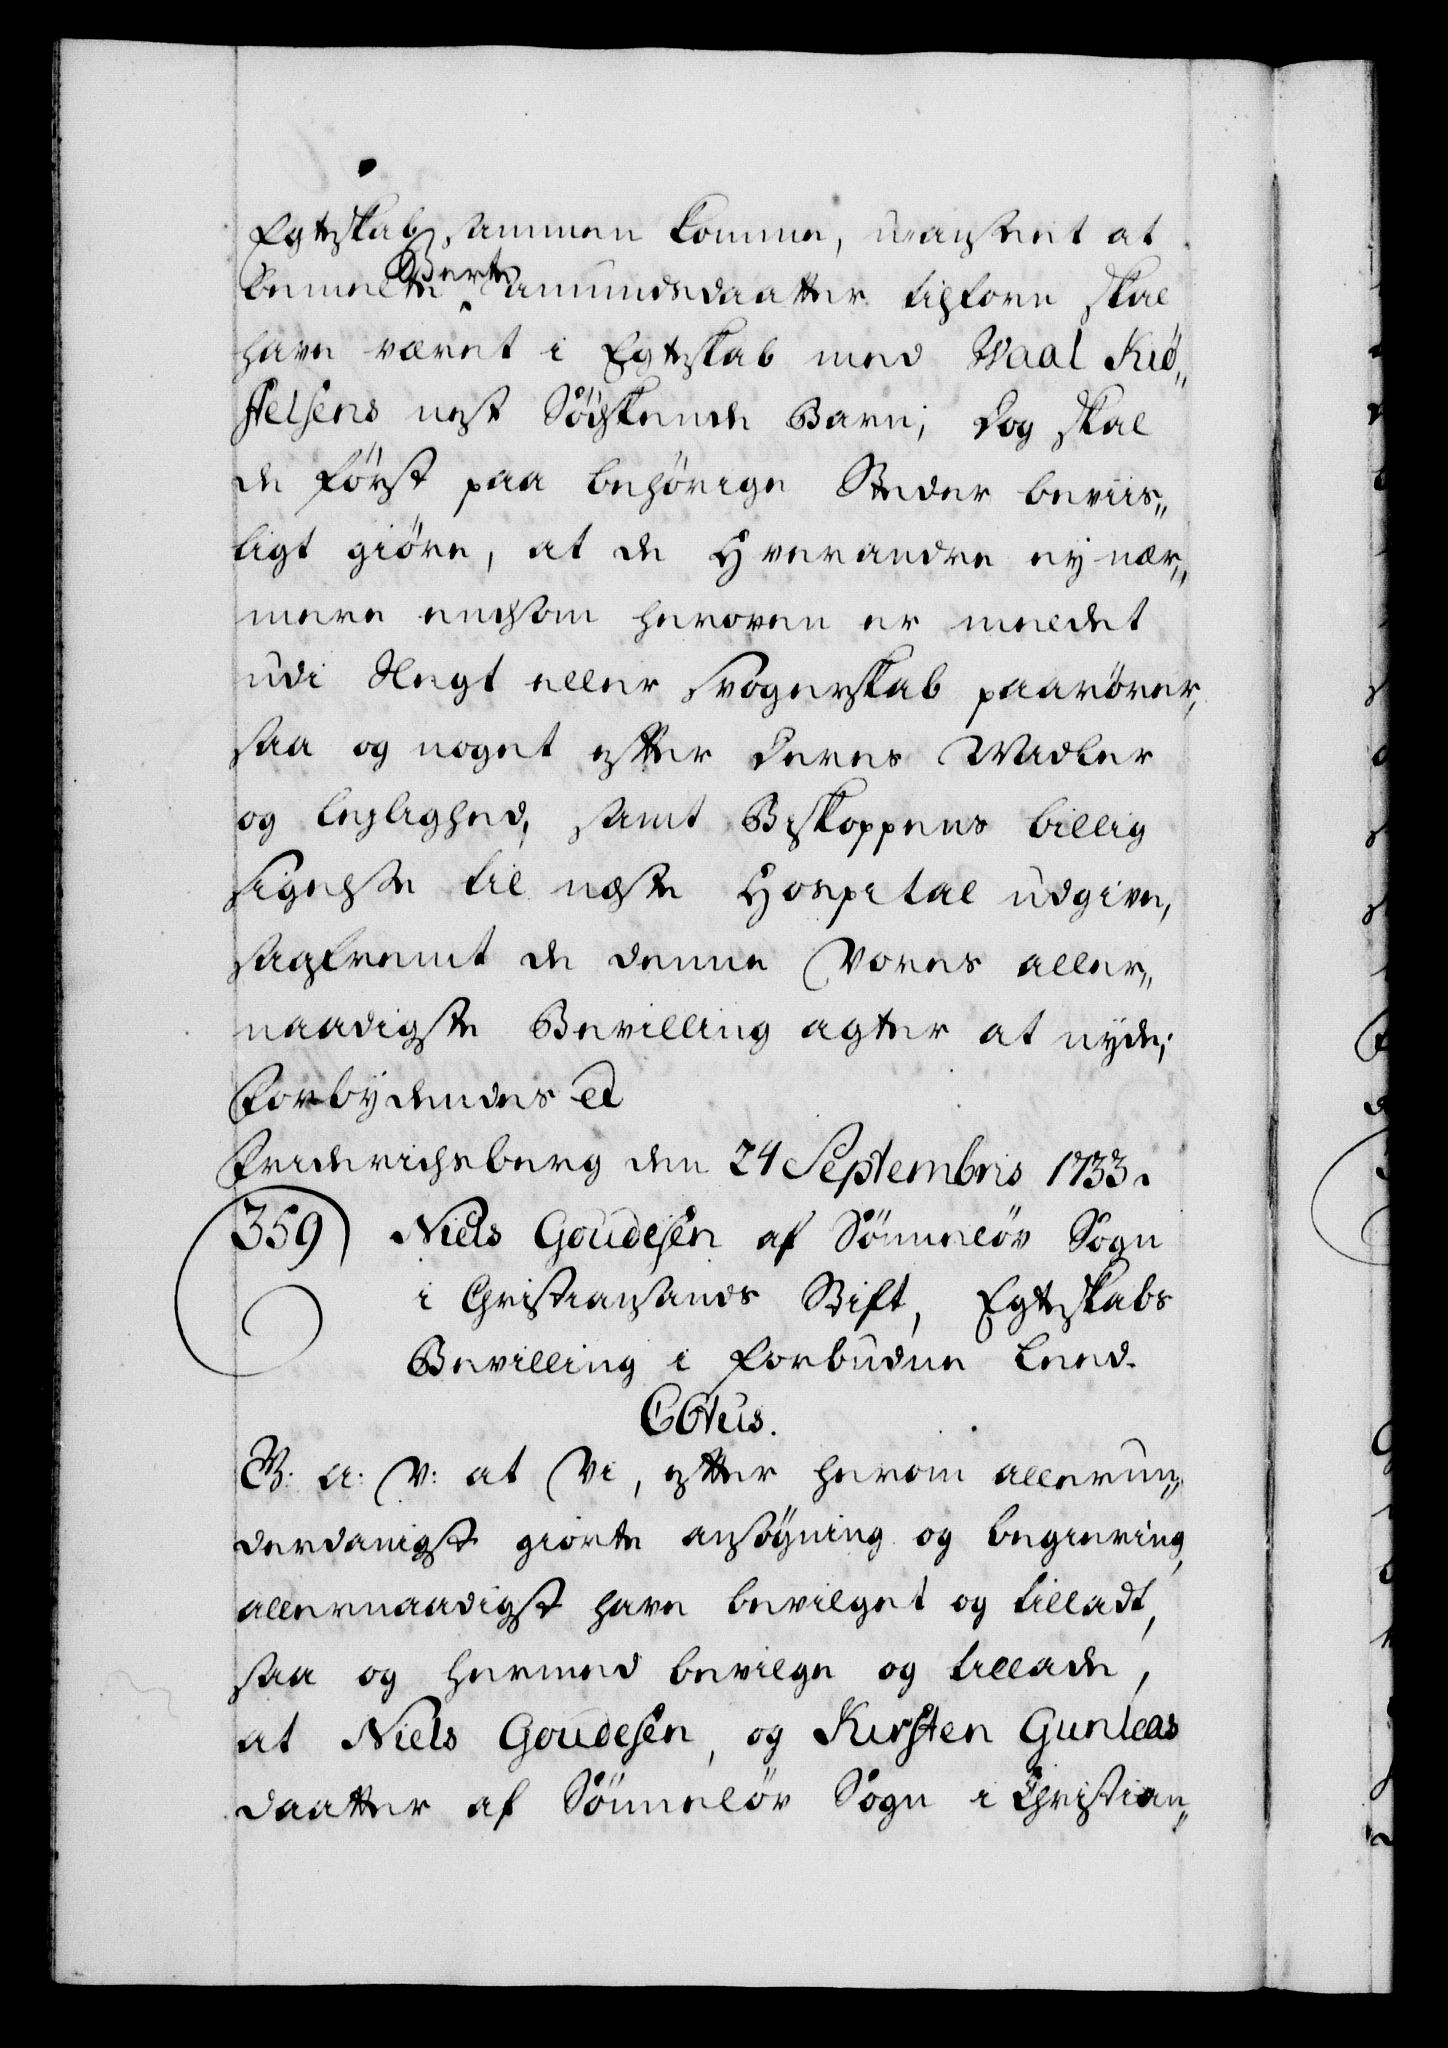 Egteskab sammen komme, uanseet at
bemelte Berte Amundsdaatter tilforn skal
have været i Egteskab med Waal Kiö„
stelsens nest Södskende Barn; Dog skal
de först paa behörige Steder beviis„
ligt giöre, at de Hverandre ey nær„
mere end som heroven er meldet
udi Slegt eller Svogerskab paarörer,
saa og noget efter deres Middler
og leylighed, samt Biskoppens billig
sigelse til neste Hospital udgive,
saafremt de denne Vores aller„
naadigste Bevilling agter at nyde;
Forbydendes et
Friderichsberg den 24 Septembris 1733.
359 Niels Goudesen af Sönneløv Sogn
i Christiansands Stift, Egteskabs
Bevilling i forbudne Leed.
C6tus.
G: A: V: at Vi, efter herom allerun„
derdanigst giorte ansögning og begiering,
allernaadigst have bevilget og tilladt,
saa og hermed bevilge og tillade,
at Niels Goudesen, og Kirsten Gunleas
daatter af Sönneløv Sogn i Christian„